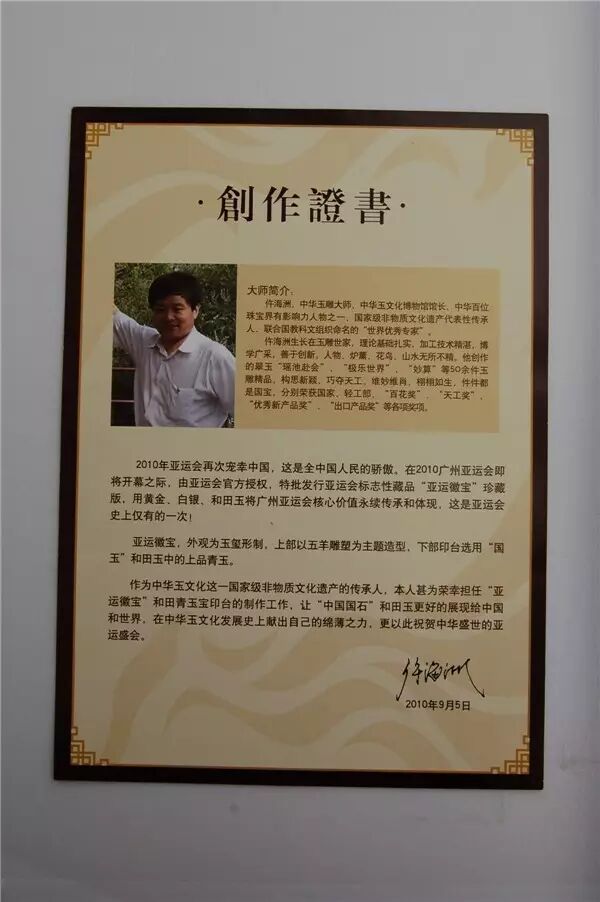 ·創作證書·
大师简介：
仵海洲，中华玉雕大师，中华玉文化博物馆馆长，中华百位
珠宝界有影响力人物之一、国家级非物质文化遗产代表性传承
人、联合国教科文组织命名的“世界优秀专家”。
仵海洲生长在玉雕世家，理论基础扎实，加工技术精湛，博
学广采，善于创新，人物、炉薰、花鸟、山水无所不精。他创作
的翠玉“瑶池赴会”、“极乐世界”、“妙算”等50余件玉
雕精品，构思新颖，巧夺天工，维妙维肖，栩栩如生，件件都
是国宝，分别荣获国家、轻工部、“百花奖”、“天工奖”、
“优秀新产品奖”、“出口产品奖”等各项奖项。
2010年亚运会再次宠幸中国，这是全中国人民的骄傲。在2010广州亚运会即
将开幕之际，由亚运会官方授权，特批发行亚运会标志性藏品“亚运徽宝”珍藏
版，用黄金、白银、和田玉将广州亚运会核心价值永续传承和体现，这是亚运会
史上仅有的一次！
亚运徽宝，外观为玉玺形制，上部以五羊雕塑为主题造型，下部印台选用“国
玉”和田玉中的上品青玉。
作为中华玉文化这一国家级非物质文化遗产的传承人，本人甚为荣幸担任“亚
运徽宝”和田青玉宝印台的制作工作，让“中国国石”和田玉更好的展现给中国
和世界，在中华玉文化发展史上献出自己的绵薄之力，更以此祝贺中华盛世的亚
运盛会。
仵海洲
2010年9月5日